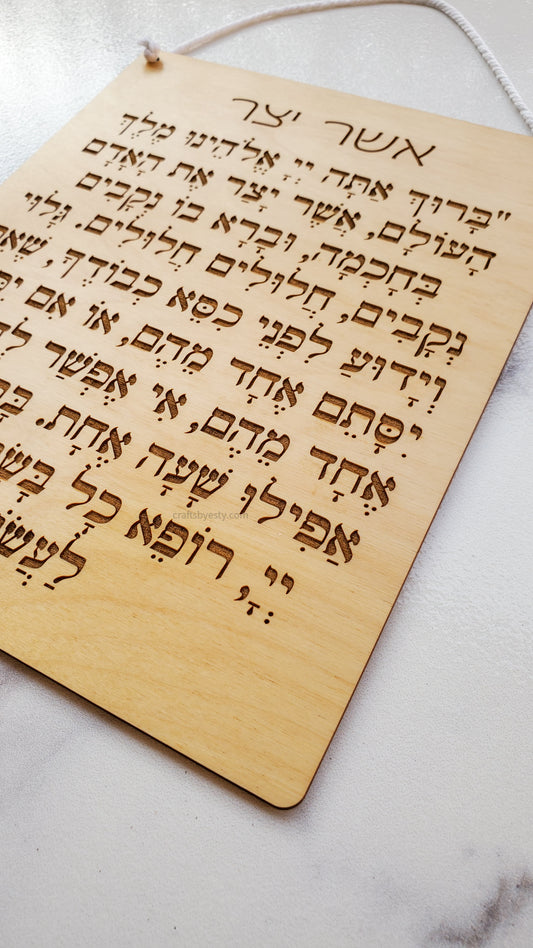 אשר יצר
"בָּרוּךְ אַתָּה יְיָ אֱלֹהֵינוּ מֶלֶךְ
הָעוֹלָם, אֲשֶׁר יָצַר אֶת הָאָדָם
בְּחָכְמָה, וּבָרָא בוֹ נְקָבִים
נְקָבִים, חֲלוּלִים חֲלוּלִים. גָּלוּי
וְיָדוּעַ לִפְנֵי כִסֵּא כְבוֹדֶךָ,
יִסָּתֵם אֶחָד מֵהֶם, אוֹ אִם
אֶחָד מֵהֶם, אִי אֶפְשַׁר
אַפִילוּ שָׁעָה אֶחָת.
יְיָ, רוֹפֵא כָל
craftsbyesty.com